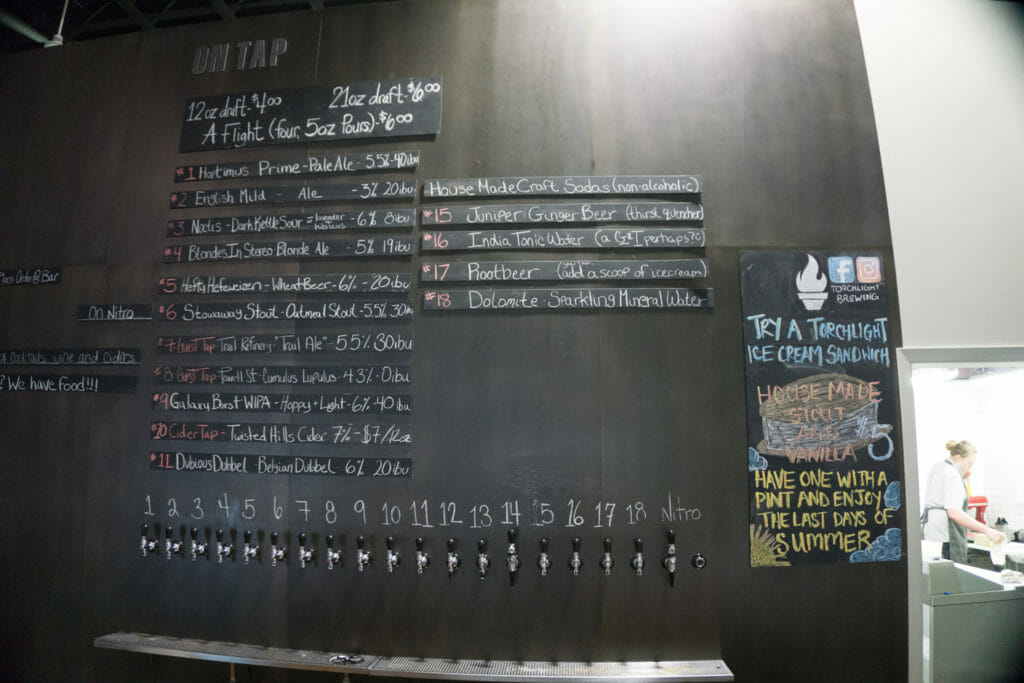 ON TAP
12oz draft-$4.00 21oz draft-$6.00
A Flight (four, 5oz Pours)-$6.00
#1 Hortimus Prime-Pale Ale - 5.5%-40ibu
#2 English Mild - Ale - 3% 20ibu
#3 Noctis-Dark Kettle Sour = lavender hibiscus - 6% 8ibu
#4 Blondes In Stereo Blonde Ale - 5% 19ibu
#5 Hefty Hefeweizen - Wheat Beer - 6% - 20ibu
#6 Stowaway Stout - Oatmeal Stout - 5.5% 30ibu
#7 Guest Tap - Trail Refinery-"Trail Ale" - 5.5% 30ibu
#8 Guest Tap - Powell St - Cumulus Lupulus - 4.3% - 0ibu
#9 Galaxy Borst WIPA - Hoppy + Light - 6% - 40ibu
#10 Cider Tap - Twisted Hills Cider 7% - $7/12oz
#11 Dubious Dubbel - Belgian Dubbel - 6% 20ibu
House Made Craft Sodas (non-alcoholic)
#15 Juniper Ginger Beer (thirst quencher)
#16 India Tonic Water (a G&T perhaps?)
#17 Rootbeer (add a scoop of icecream)
#18 Dolomite - Sparkling Mineral Water
Place Order @ Bar
On Nitro
Cocktails, wine and Ciders
? We have food!!!
1 2 3 4 5 6 7 8 9 10 11 12 13 14 15 16 17 18 Nitro
TORCHLIGHT
BREWING
TRY A TORCHLIGHT
ICE CREAM SANDWICH
HOUSE MADE
STOUT
AND
VANILLA
HAVE ONE WITH A
PINT AND ENJOY
THE LAST DAYS OF
SUMMER